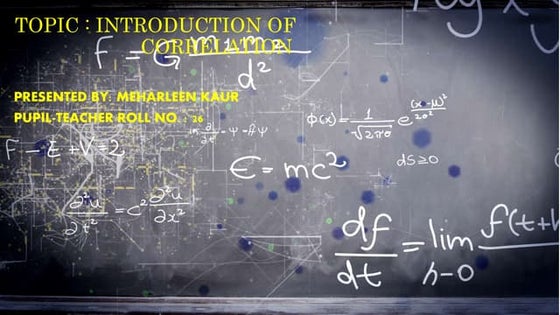 TOPIC : INTRODUCTION OF
CORRELATION
PRESENTED BY: MEHARLEEN KAUR
PUPIL-TEACHER ROLL NO. : 26
log x
d²
φ(x) = 1/√2πσ e^(x-μ)²/2σ²
F - E + V = 2
Є = mc²
dS ≥ 0
∂²u/∂t² = c² ∂²u/∂x²
df/dt = lim h→0 f(t+h